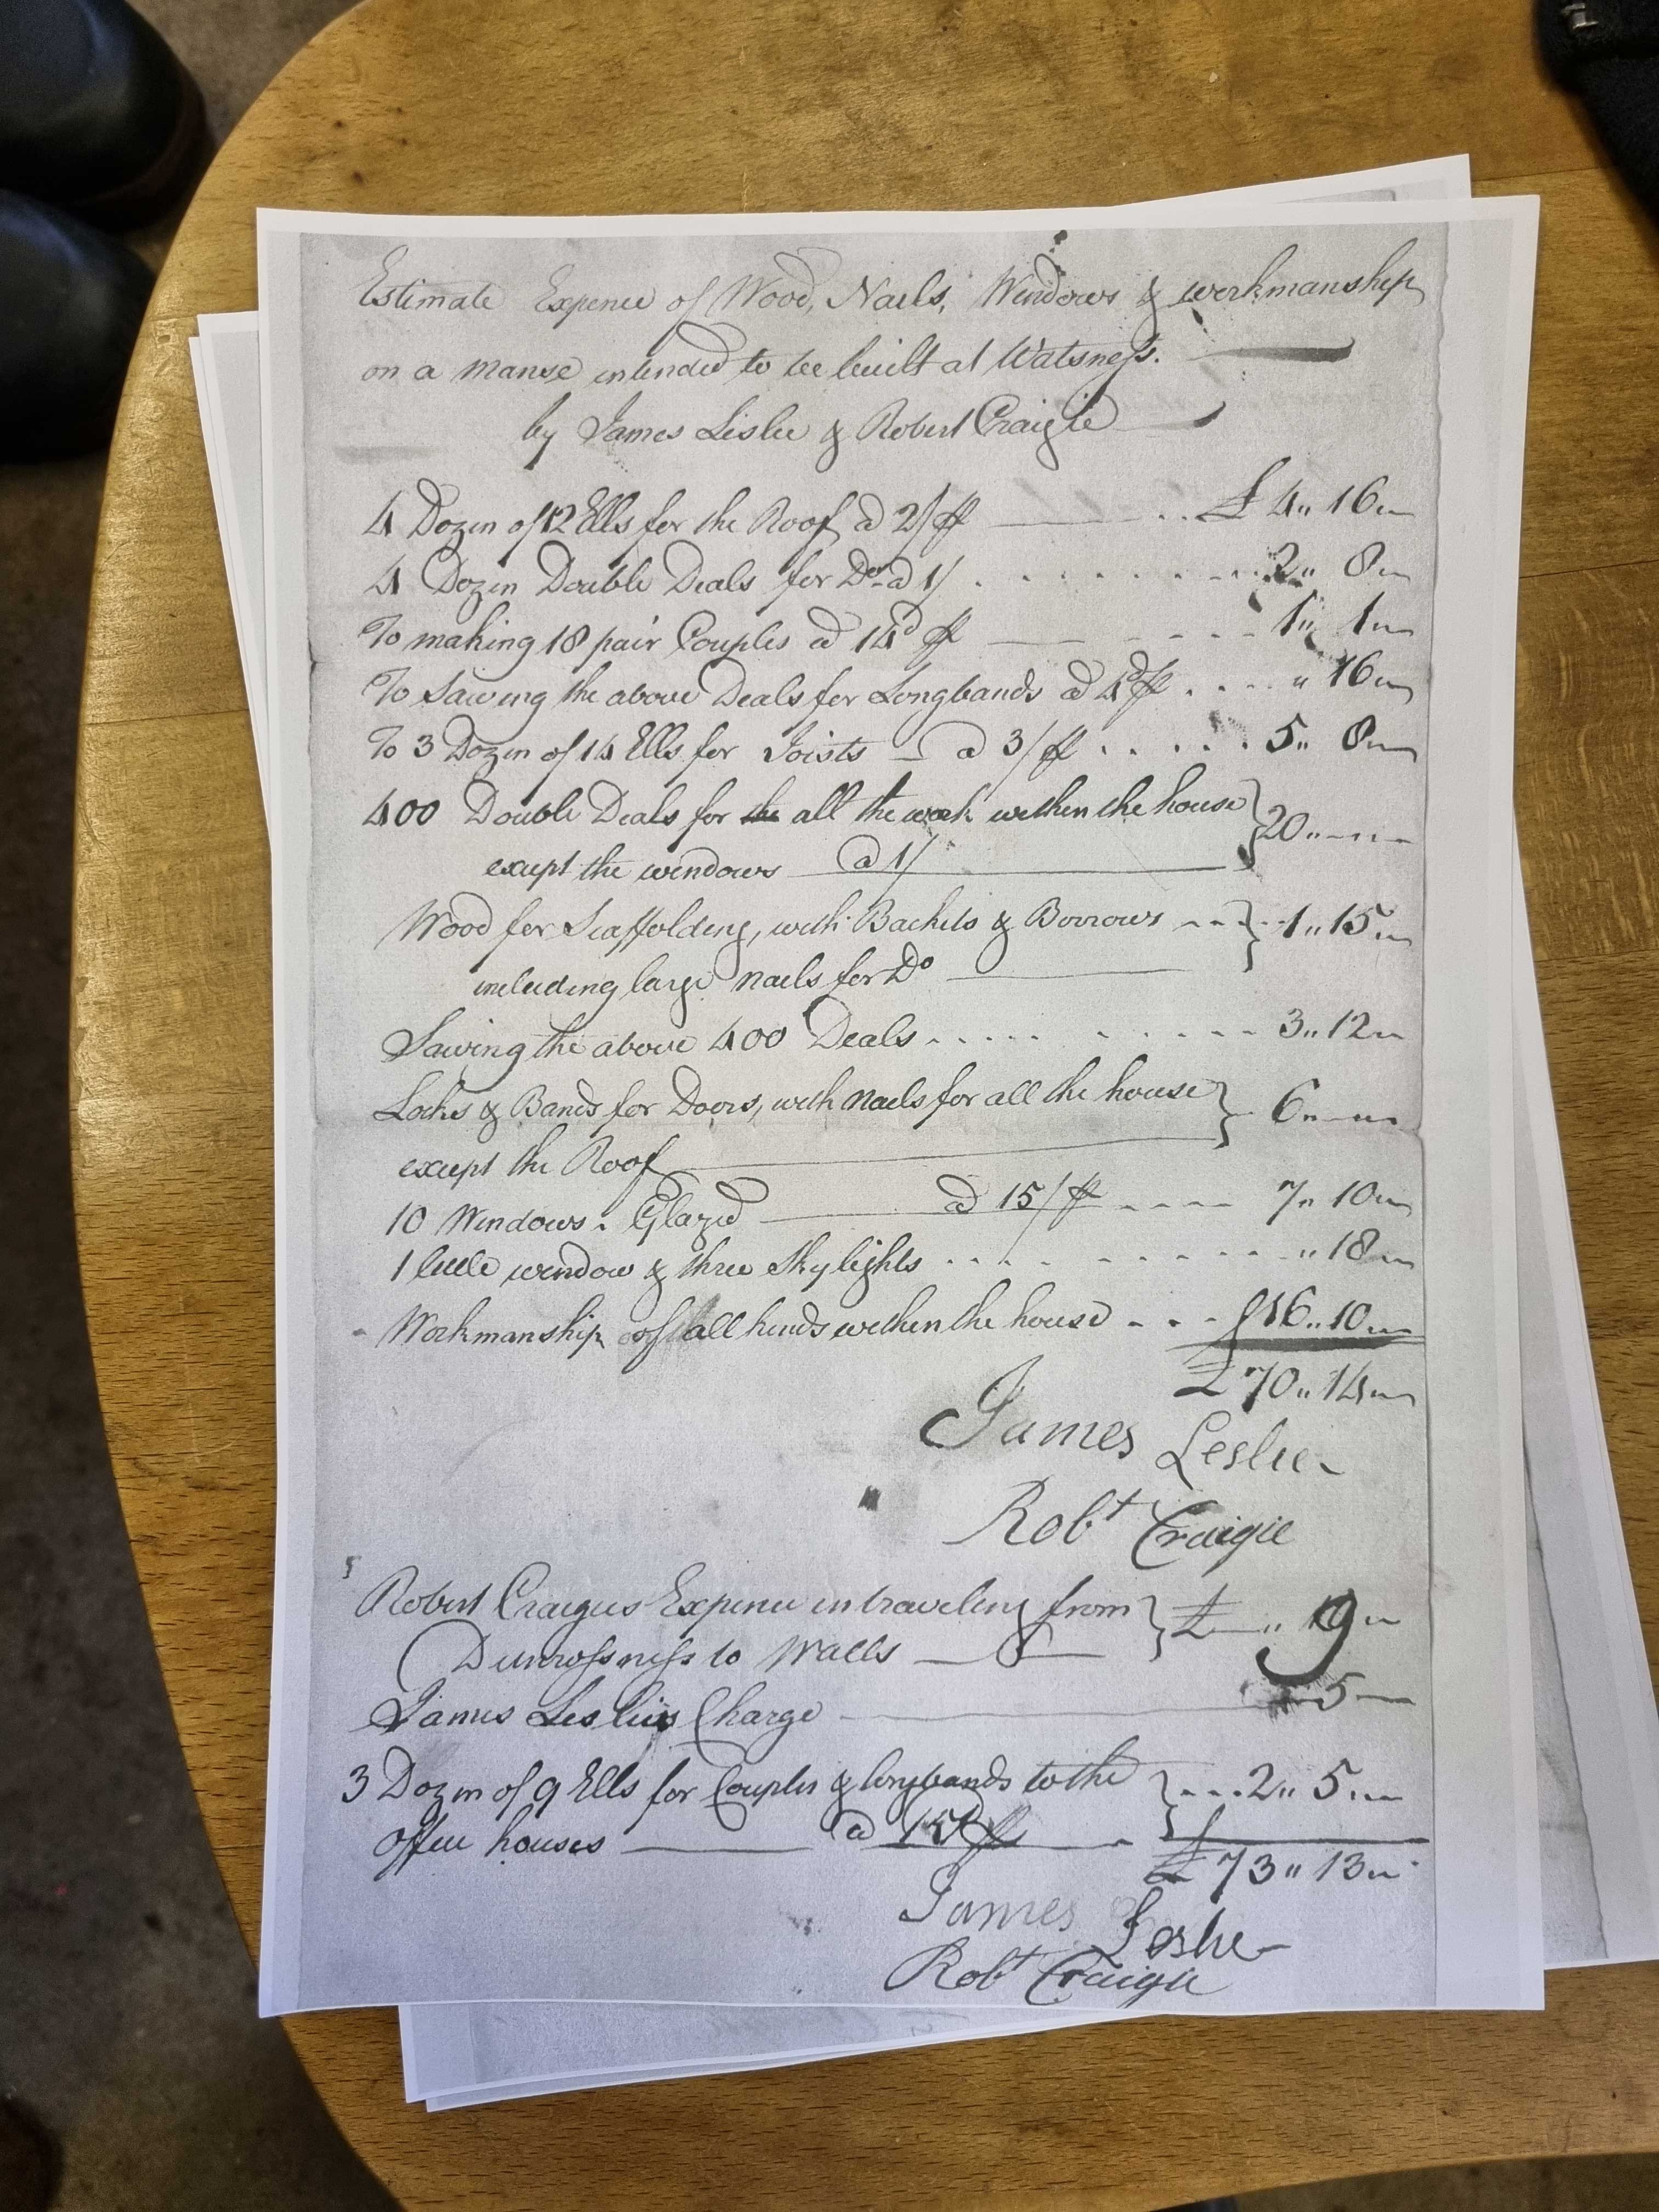 Estimate Expence of Wood, Nails, Windows & workmanship
on a manse intended to be built at Watsness.
by James Leslie & Robert Craigie
4 Dozen of 12 Ells for the Roof, a 2/ ℔ £ 4 ,, 16 ,, —
4 Dozen Double Deals for Do. a 1/ 2 ,, 8 ,, —
To making 18 pair Couples a 14d ℔ 1 ,, 1 ,, —
To Sawing the above Deals for Longbands a 4d ℔ ,, 16 ,, —
To 3 Dozen of 14 Ells for Joists — a 3/ ℔ 5 ,, 8 ,, —
400 Double Deals for the all the work within the house
except the windows a 1/ 20 ,, — ,, —
Wood for Scaffolding, with Backits & Borrows 1 ,, 15 ,, —
including large nails for Do
Sawing the above 400 Deals 3 ,, 12 ,, —
Locks & Bands for Doors, with nails for all the house 6 ,, — ,, —
except the Roof
10 Windows. Glazed a 15/ ℔ 7 ,, 10 ,, —
1 little window & three Skylights ,, 18 ,, —
Workmanship of all kinds within the house £16 ,, 10 ,, —
£ 70 ,, 14 ,, —
James Leslie
Robt Craigie
Robert Craigies Expence in traveling from £ — ,, 9 ,, —
Dunrossness to Walls
James Leslies Charge 5 —
3 Dozen of 9 Ells for Couples & longbands to the 2 ,, 5 ,, —
office houses a 15d ℔
£ 73 ,, 13 ,, —
James Leslie
Robt Craigie